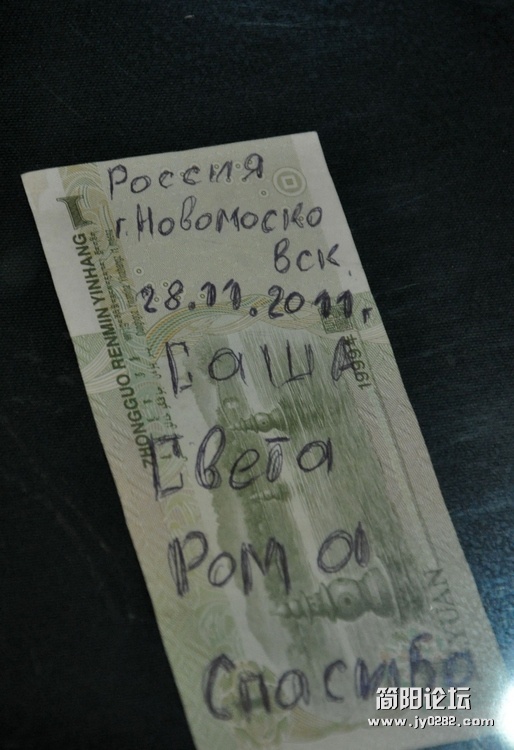 Россия
г. Новомоско
вск.
28.11.2011г.
Саша
Света
Рома
Спасибо
ZHONGGUO RENMIN YINHANG
1
1999
YUAN
简阳论坛
www.jy0282.com